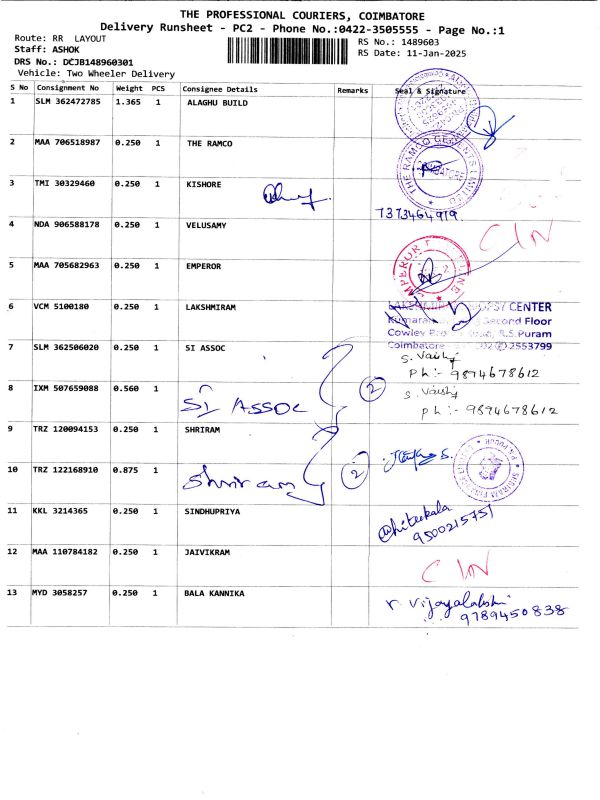 THE PROFESSIONAL COURIERS, COIMBATORE
Delivery Runsheet - PC2 - Phone No.:0422-3505555 - Page No.:1
Route: RR LAYOUT
RS No.: 1489603
Staff: ASHOK
RS Date: 11-Jan-2025
DRS No.: DCJB148960301
Vehicle: Two Wheeler Delivery
S No Consignment No Weight PCS Consignee Details Remarks Seal & Signature
1 SLM 362472785 1.365 1 ALAGHU BUILD
2 MAA 706518987 0.250 1 THE RAMCO
THE RAMCO CEMENTS LIMITED
3 TMI 30329460 0.250 1 KISHORE
7373464919.
4 NDA 906588178 0.250 1 VELUSAMY
C IN
5 MAA 705682963 0.250 1 EMPEROR
6 VCM 5100180 0.250 1 LAKSHMIRAM
CENTER
Second Floor
Cowley R.S.Puram
Coimbatore 2553799
7 SLM 362506020 0.250 1 SI ASSOC
S. Vaish
Ph:- 9894678612
8 IXM 507659088 0.560 1
SI ASSOC
2
S. Vaish
ph:- 9894678612
9 TRZ 120094153 0.250 1 SHRIRAM
10 TRZ 122168910 0.875 1
Shriram
2
11 KKL 3214365 0.250 1 SINDHUPRIYA
9500215751
12 MAA 110784182 0.250 1 JAIVIKRAM
C IN
13 MYD 3058257 0.250 1 BALA KANNIKA
r. Vijayalakshmi
9789450838